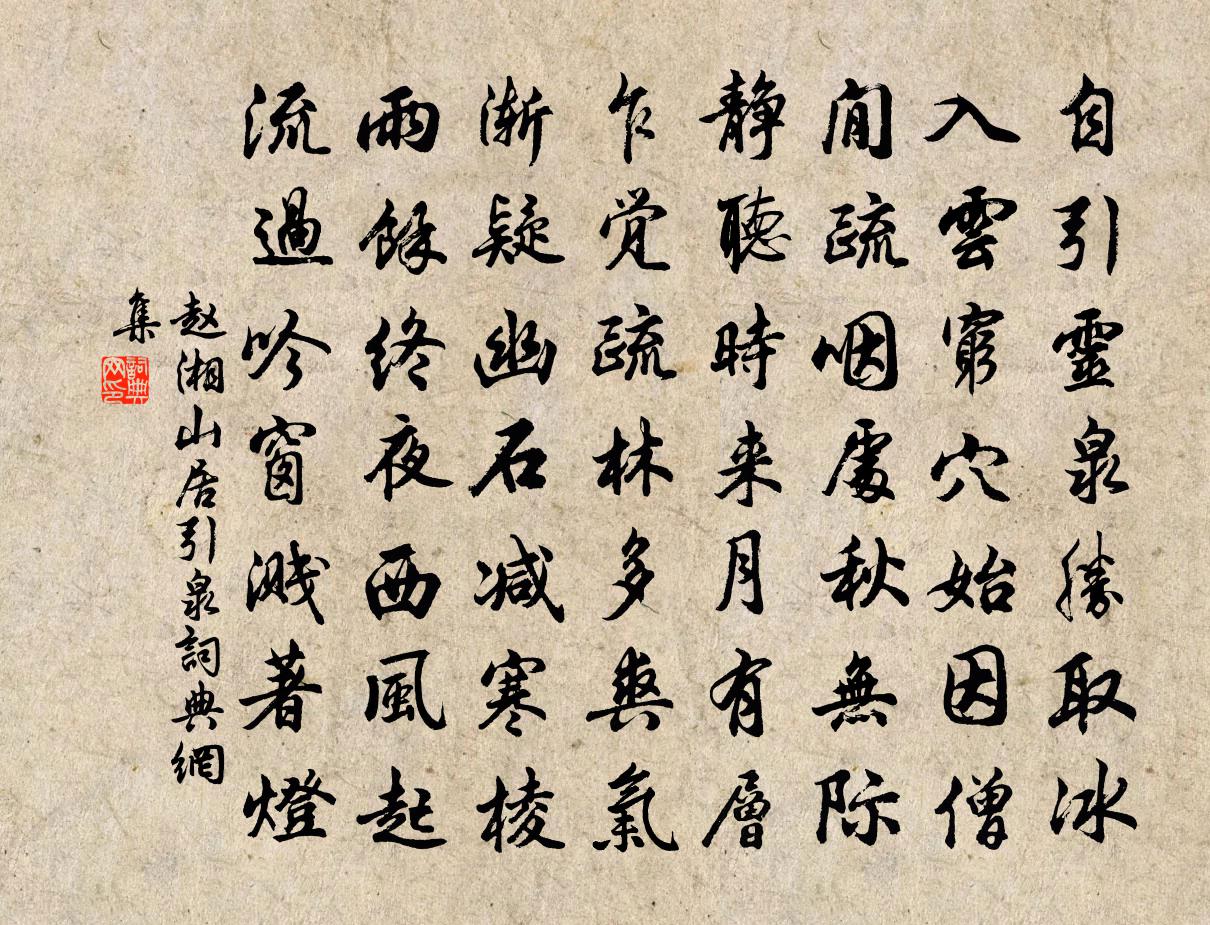 自引靈泉勝取冰
入雲窮穴始因僧
閒疏咽處秋無際
静聽時来月有層
乍覺疏林多爽氣
漸疑幽石减寒棱
雨餘終夜西風起
流過吟窗溅著燈
赵湘山居引泉詞典網
集
詞典網印